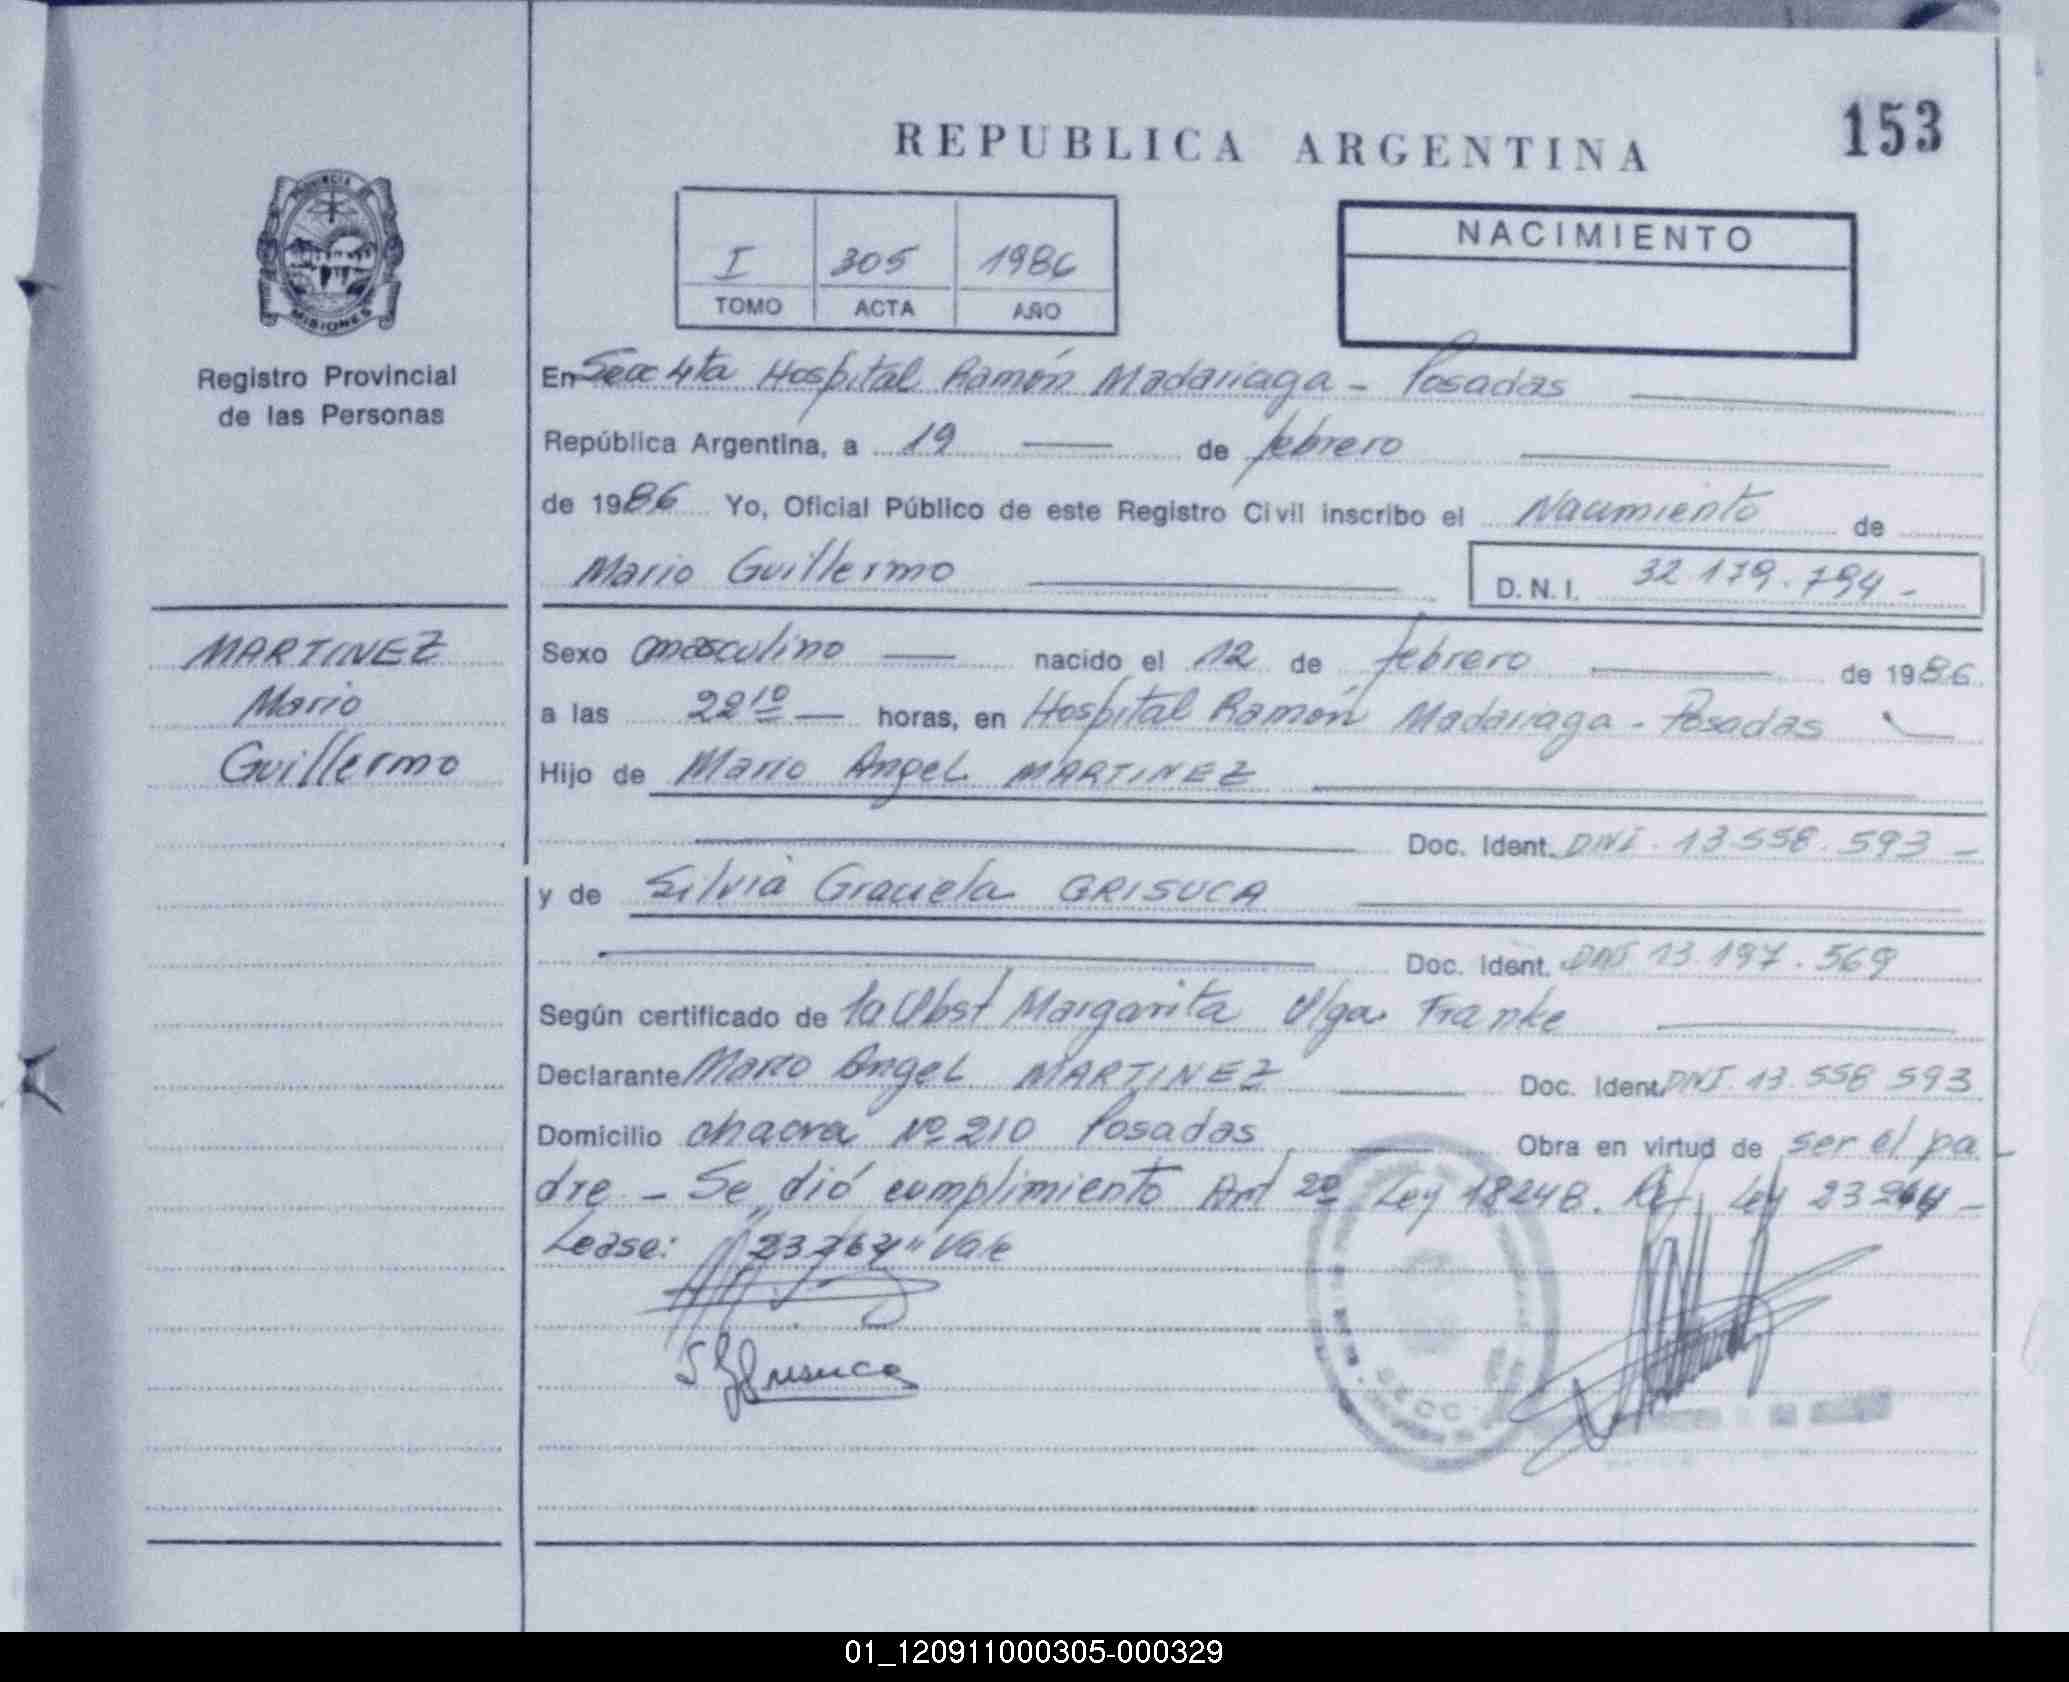 153
REPUBLICA ARGENTINA
PROVINCIA DE
MISIONES
Registro Provincial
de las Personas
I 305 1986
TOMO ACTA AÑO
NACIMIENTO
En Secc 4ta Hospital Ramón Madariaga - Posadas
República Argentina, a 19 de febrero
de 1986 Yo, Oficial Público de este Registro Civil inscribo el Nacimiento de
Mario Guillermo D.N.I. 32.179.794.-
MARTINEZ
Mario
Guillermo
Sexo masculino nacido el 12 de febrero de 1986
a las 22 10 horas, en Hospital Ramón Madariaga - Posadas
Hijo de Mario Angel MARTINEZ
Doc. Ident. DNI. 13.558.593 -
y de Silvia Graciela GRISUCA
Doc. Ident. DNI 13.197.569
Según certificado de la Obst Margarita Olga Franke
Declarante Mario Angel MARTINEZ Doc. Ident. DNI. 13.558 593
Domicilio chacra Nº 210 Posadas Obra en virtud de ser el pa-
dre - Se dió cumplimiento Art 2º Ley 18248. Ley
Lease: vale
S G Grisuca
SECC.
01_120911000305-000329